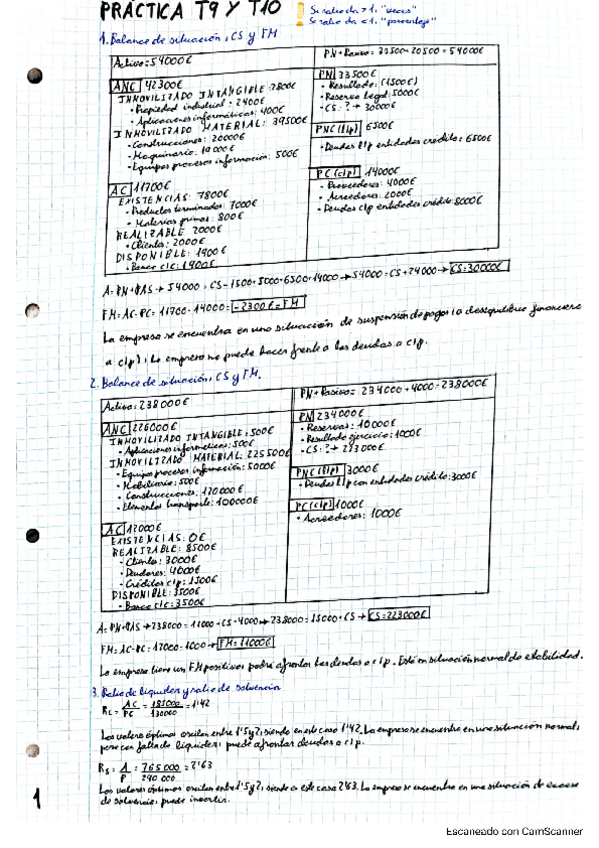 PRÁCTICA T9 Y T10
Si ratio da > 1: "veces"
Si ratio da < 1: "porcentaje"
1. Balance de situación, CS y FM
Activo: 54000€
PN + Pasivo: 33500 + 20500 = 54000€
ANC 42300€
INMOVILIZADO INTANGIBLE: 2800€
• Propiedad industrial: 2400€
• Aplicaciones informáticas: 400€
INMOVILIZADO MATERIAL: 39500€
• Construcciones: 20000€
• Maquinaria: 19000€
• Equipos procesos información: 500€
AC 11700€
EXISTENCIAS: 7800€
• Productos terminados: 7000€
• Materias primas: 800€
REALIZABLE 2000€
• Clientes: 2000€
DISPONIBLE: 1900€
• Banco c/c: 1900€
PN 33500€
• Resultado: (1500€)
• Reserva legal: 5000€
• CS: ? → 30000€
PNC (l/p) 6500€
• Deudas l/p entidades crédito: 6500€
PC (c/p) 14000€
• Proveedores: 4000€
• Acreedores: 2000€
• Deudas c/p entidades crédito: 8000€
A = PN + PAS → 54000 = CS - 1500 + 5000 + 6500 + 14000 → 54000 = CS + 24000 → CS = 30000€
FM = AC - PC = 11700 - 14000 = -2300€ = FM
La empresa se encuentra en una situación de suspensión de pagos (o desequilibrio financiero
a c/p); la empresa no puede hacer frente a las deudas a c/p.
2. Balance de situación, CS y FM.
Activo: 238000€
PN + Pasivo: 234000 + 4000 = 238000€
ANC 226000€
INMOVILIZADO INTANGIBLE: 500€
• Aplicaciones informáticas: 500€
INMOVILIZADO MATERIAL: 225500€
• Equipos procesos información: 5000€
• Mobiliario: 500€
• Construcciones: 120000€
• Elementos transporte: 100000€
AC 12000€
EXISTENCIAS: 0€
REALIZABLE: 8500€
• Clientes: 3000€
• Deudores: 4000€
• Créditos c/p: 1500€
DISPONIBLE: 3500€
• Banco c/c: 3500€
PN 234000€
• Reservas: 10000€
• Resultado ejercicio: 1000€
• CS: ? → 223000€
PNC (l/p) 3000€
• Deudas l/p con entidades crédito: 3000€
PC (c/p) 1000€
• Acreedores: 1000€
A = PN + PAS → 238000 = 11000 + CS + 4000 → 238000 = 15000 + CS → CS = 223000€
FM = AC - PC = 12000 - 1000 → FM = 11000€
La empresa tiene un FM positivo: podrá afrontar las deudas a c/p. Está en situación normal de estabilidad.
3. Ratio de liquidez y ratio de solvencia
RL = AC / PC = 185000 / 130000 = 1'42
Los valores óptimos oscilan entre 1'5 y 2, siendo en este caso 1'42. La empresa se encuentra en una situación normal,
pero con falta de liquidez; puede afrontar deudas a c/p.
RS = A / P = 765000 / 290000 = 2'63
Los valores óptimos oscilan entre 1'5 y 2, siendo en este caso 2'63. La empresa se encuentra en una situación de exceso
de solvencia; puede invertir.
1
Escaneado con CamScanner